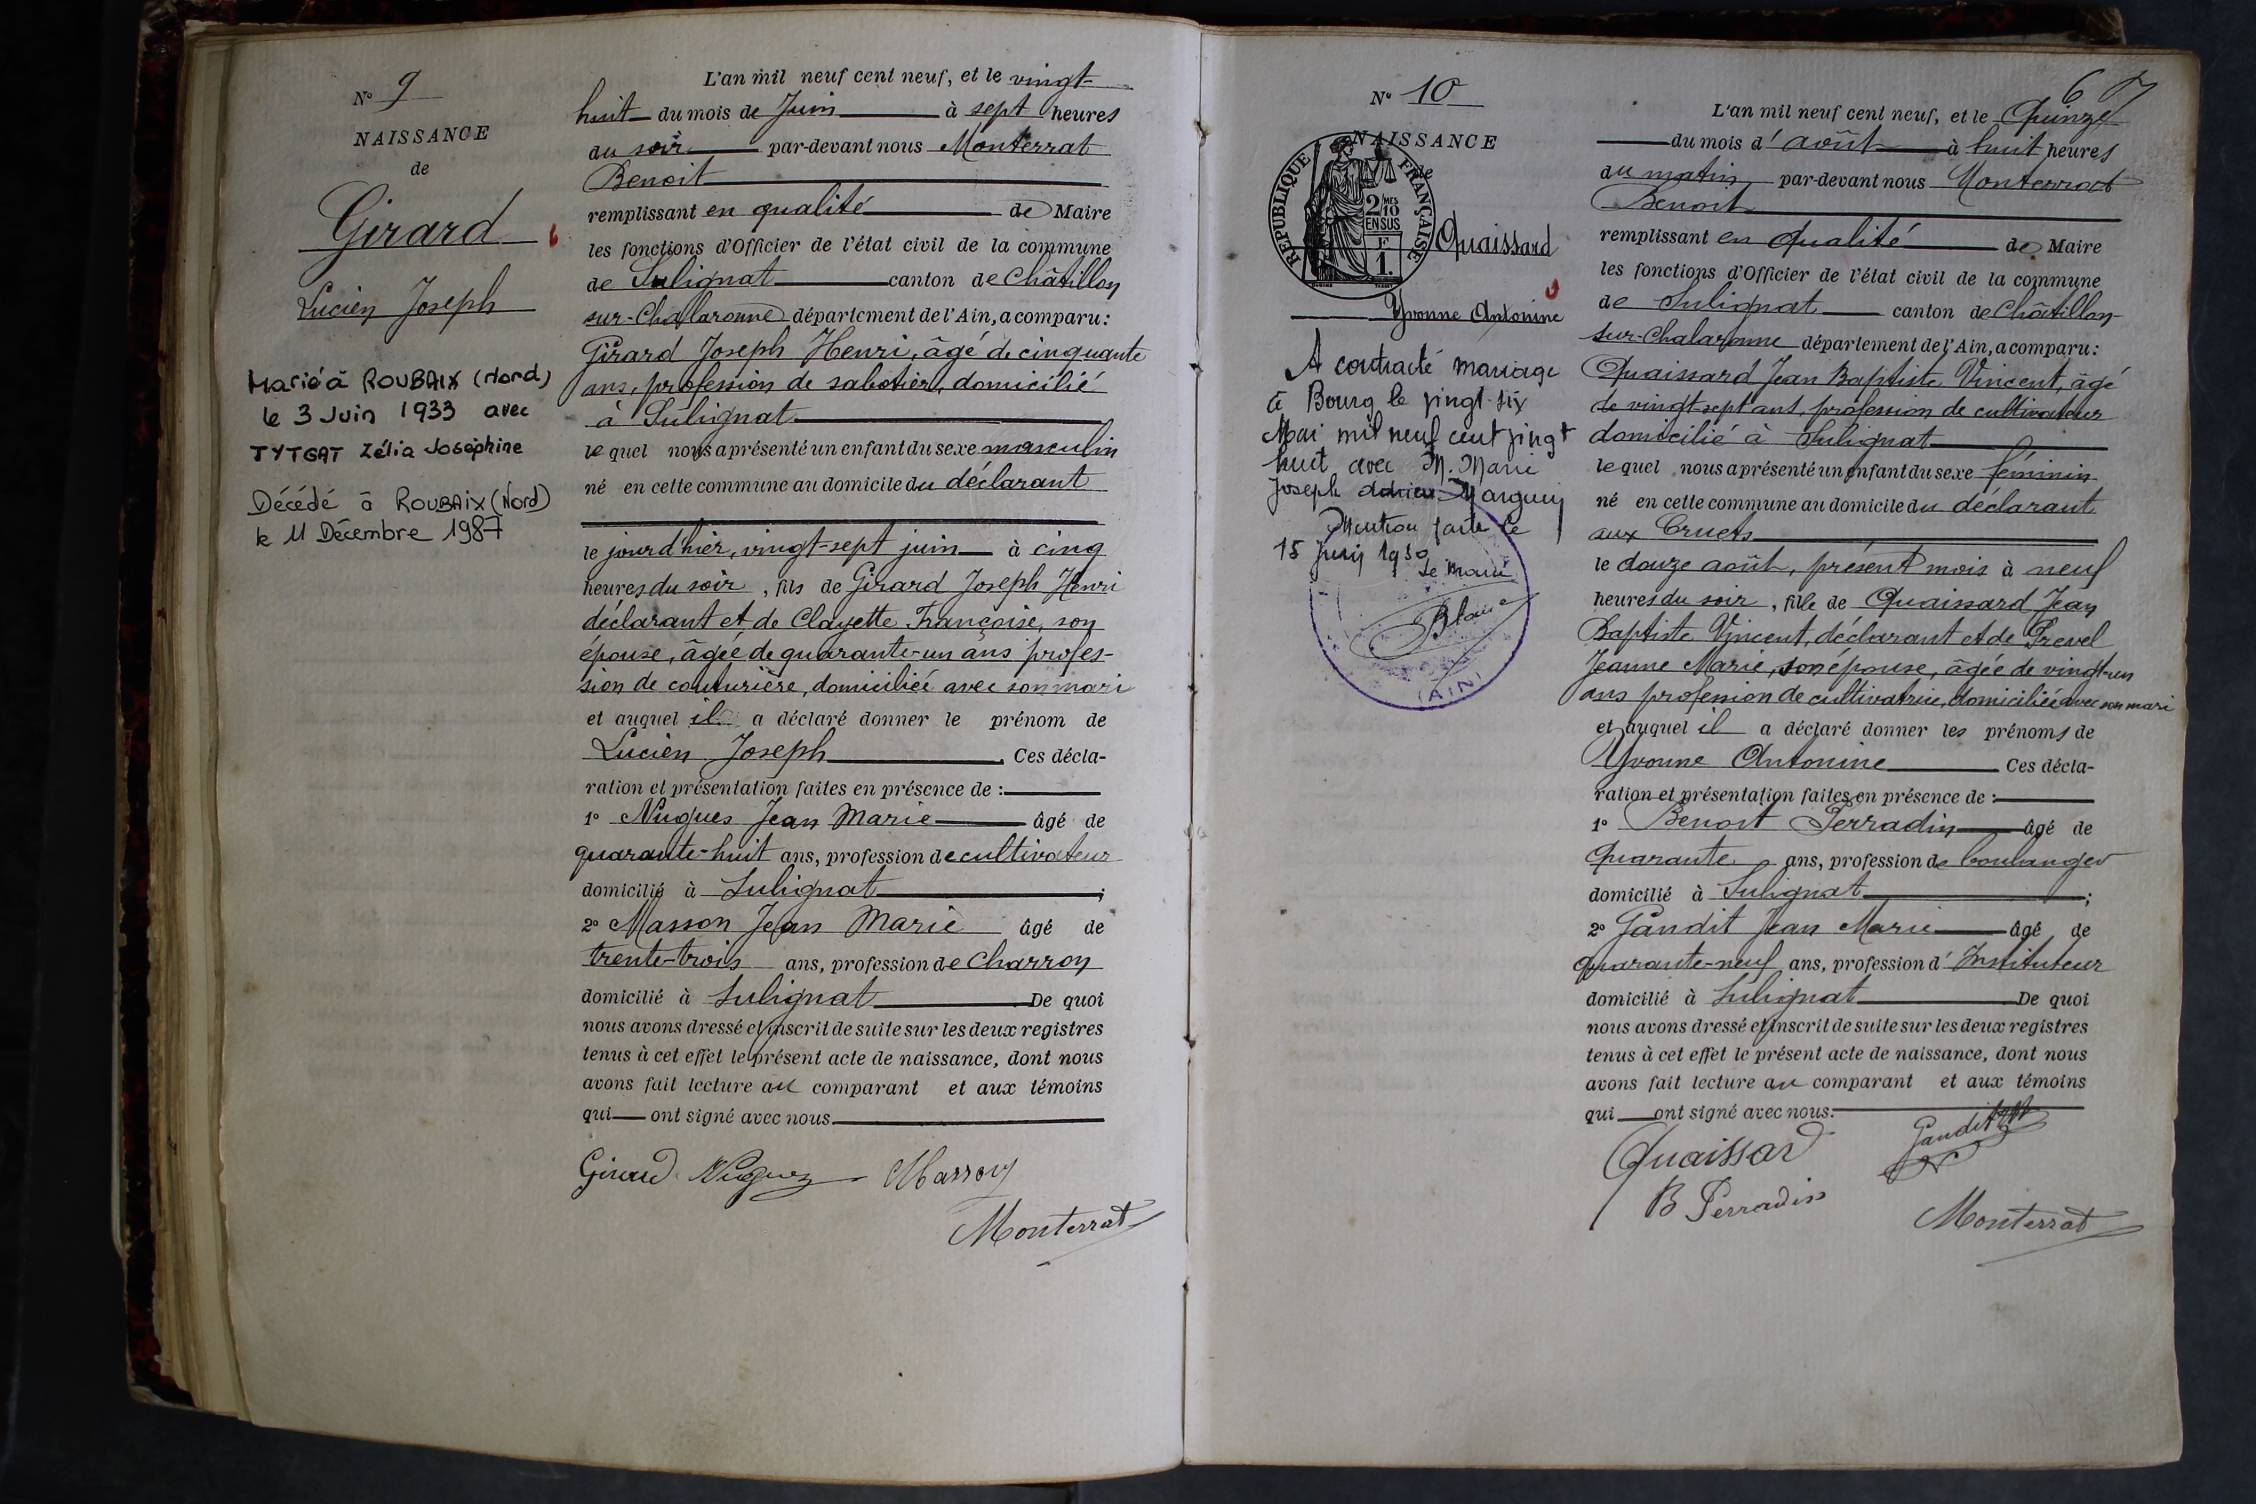 N° 9
NAISSANCE
de
Girard
Lucien Joseph
Marié à ROUBAIX (Nord)
le 3 Juin 1933 avec
TYTGAT Zélia Joséphine
Décédé à ROUBAIX (Nord)
le 11 Décembre 1987
L'an mil neuf cent neuf, et le vingt-
huit du mois de Juin à sept heures
du soir par-devant nous Monterrat
Benoit
remplissant en qualité de Maire
les fonctions d'Officier de l'état civil de la commune
de Sulignat canton de Châtillon
sur-Chalaronne département de l'Ain, a comparu:
Girard Joseph Henri, âgé de cinquante
ans, profession de sabotier, domicilié
à Sulignat
lequel nous a présenté un enfant du sexe masculin
né en cette commune au domicile du déclarant
le jour d'hier, vingt-sept juin à cinq
heures du soir, fils de Girard Joseph Henri
déclarant et de Clayette Françoise, son
épouse, âgée de quarante-un ans profes-
sion de couturière, domiciliée avec son mari
et auquel il a déclaré donner le prénom de
Lucien Joseph. Ces décla-
ration et présentation faites en présence de :
1° Nugues Jean Marie âgé de
quarante-huit ans, profession de cultivateur
domicilié à Sulignat ;
2° Masson Jean Marie âgé de
trente-trois ans, profession de Charron
domicilié à Sulignat De quoi
nous avons dressé et inscrit de suite sur les deux registres
tenus à cet effet le présent acte de naissance, dont nous
avons fait lecture au comparant et aux témoins
qui ont signé avec nous
Girard Nugues Masson
Monterrat
6
N° 10
NAISSANCE
de
REPUBLIQUE FRANÇAISE
2/10 MES
EN SUS
F
1.
Quaissard
Yvonne Antonine
A contracté mariage
à Bourg le vingt-six
Mai mil neuf cent vingt
huit avec M. Marie
Joseph Adrien Marguin
Mention faite le
15 Juin 1930
Le Maire
(AIN)
L'an mil neuf cent neuf, et le Quinze
du mois d'août à huit heures
du matin par-devant nous Monterrat
Benoit
remplissant en qualité de Maire
les fonctions d'Officier de l'état civil de la commune
de Sulignat canton de Châtillon-
sur-Chalaronne département de l'Ain, a comparu:
Quaissard Jean Baptiste Vincent, âgé
de vingt-sept ans, profession de cultivateur
domicilié à Sulignat
lequel nous a présenté un enfant du sexe féminin
né en cette commune au domicile du déclarant
aux Cruets
le douze août, présent mois à neuf
heures du soir, fille de Quaissard Jean
Baptiste Vincent, déclarant et de Prevel
Jeanne Marie, son épouse, âgée de vingt-un
ans profession de cultivatrice, domiciliée avec son mari
et auquel il a déclaré donner les prénoms de
Yvonne Antonine Ces décla-
ration et présentation faites en présence de :
1° Benoit Perradin âgé de
Quarante ans, profession de boulanger
domicilié à Sulignat ;
2° Gandit Jean Marie âgé de
quarante-neuf ans, profession d'Instituteur
domicilié à Sulignat De quoi
nous avons dressé et inscrit de suite sur les deux registres
tenus à cet effet le présent acte de naissance, dont nous
avons fait lecture au comparant et aux témoins
qui ont signé avec nous.
Quaissard Gandit
B Perradin
Monterrat